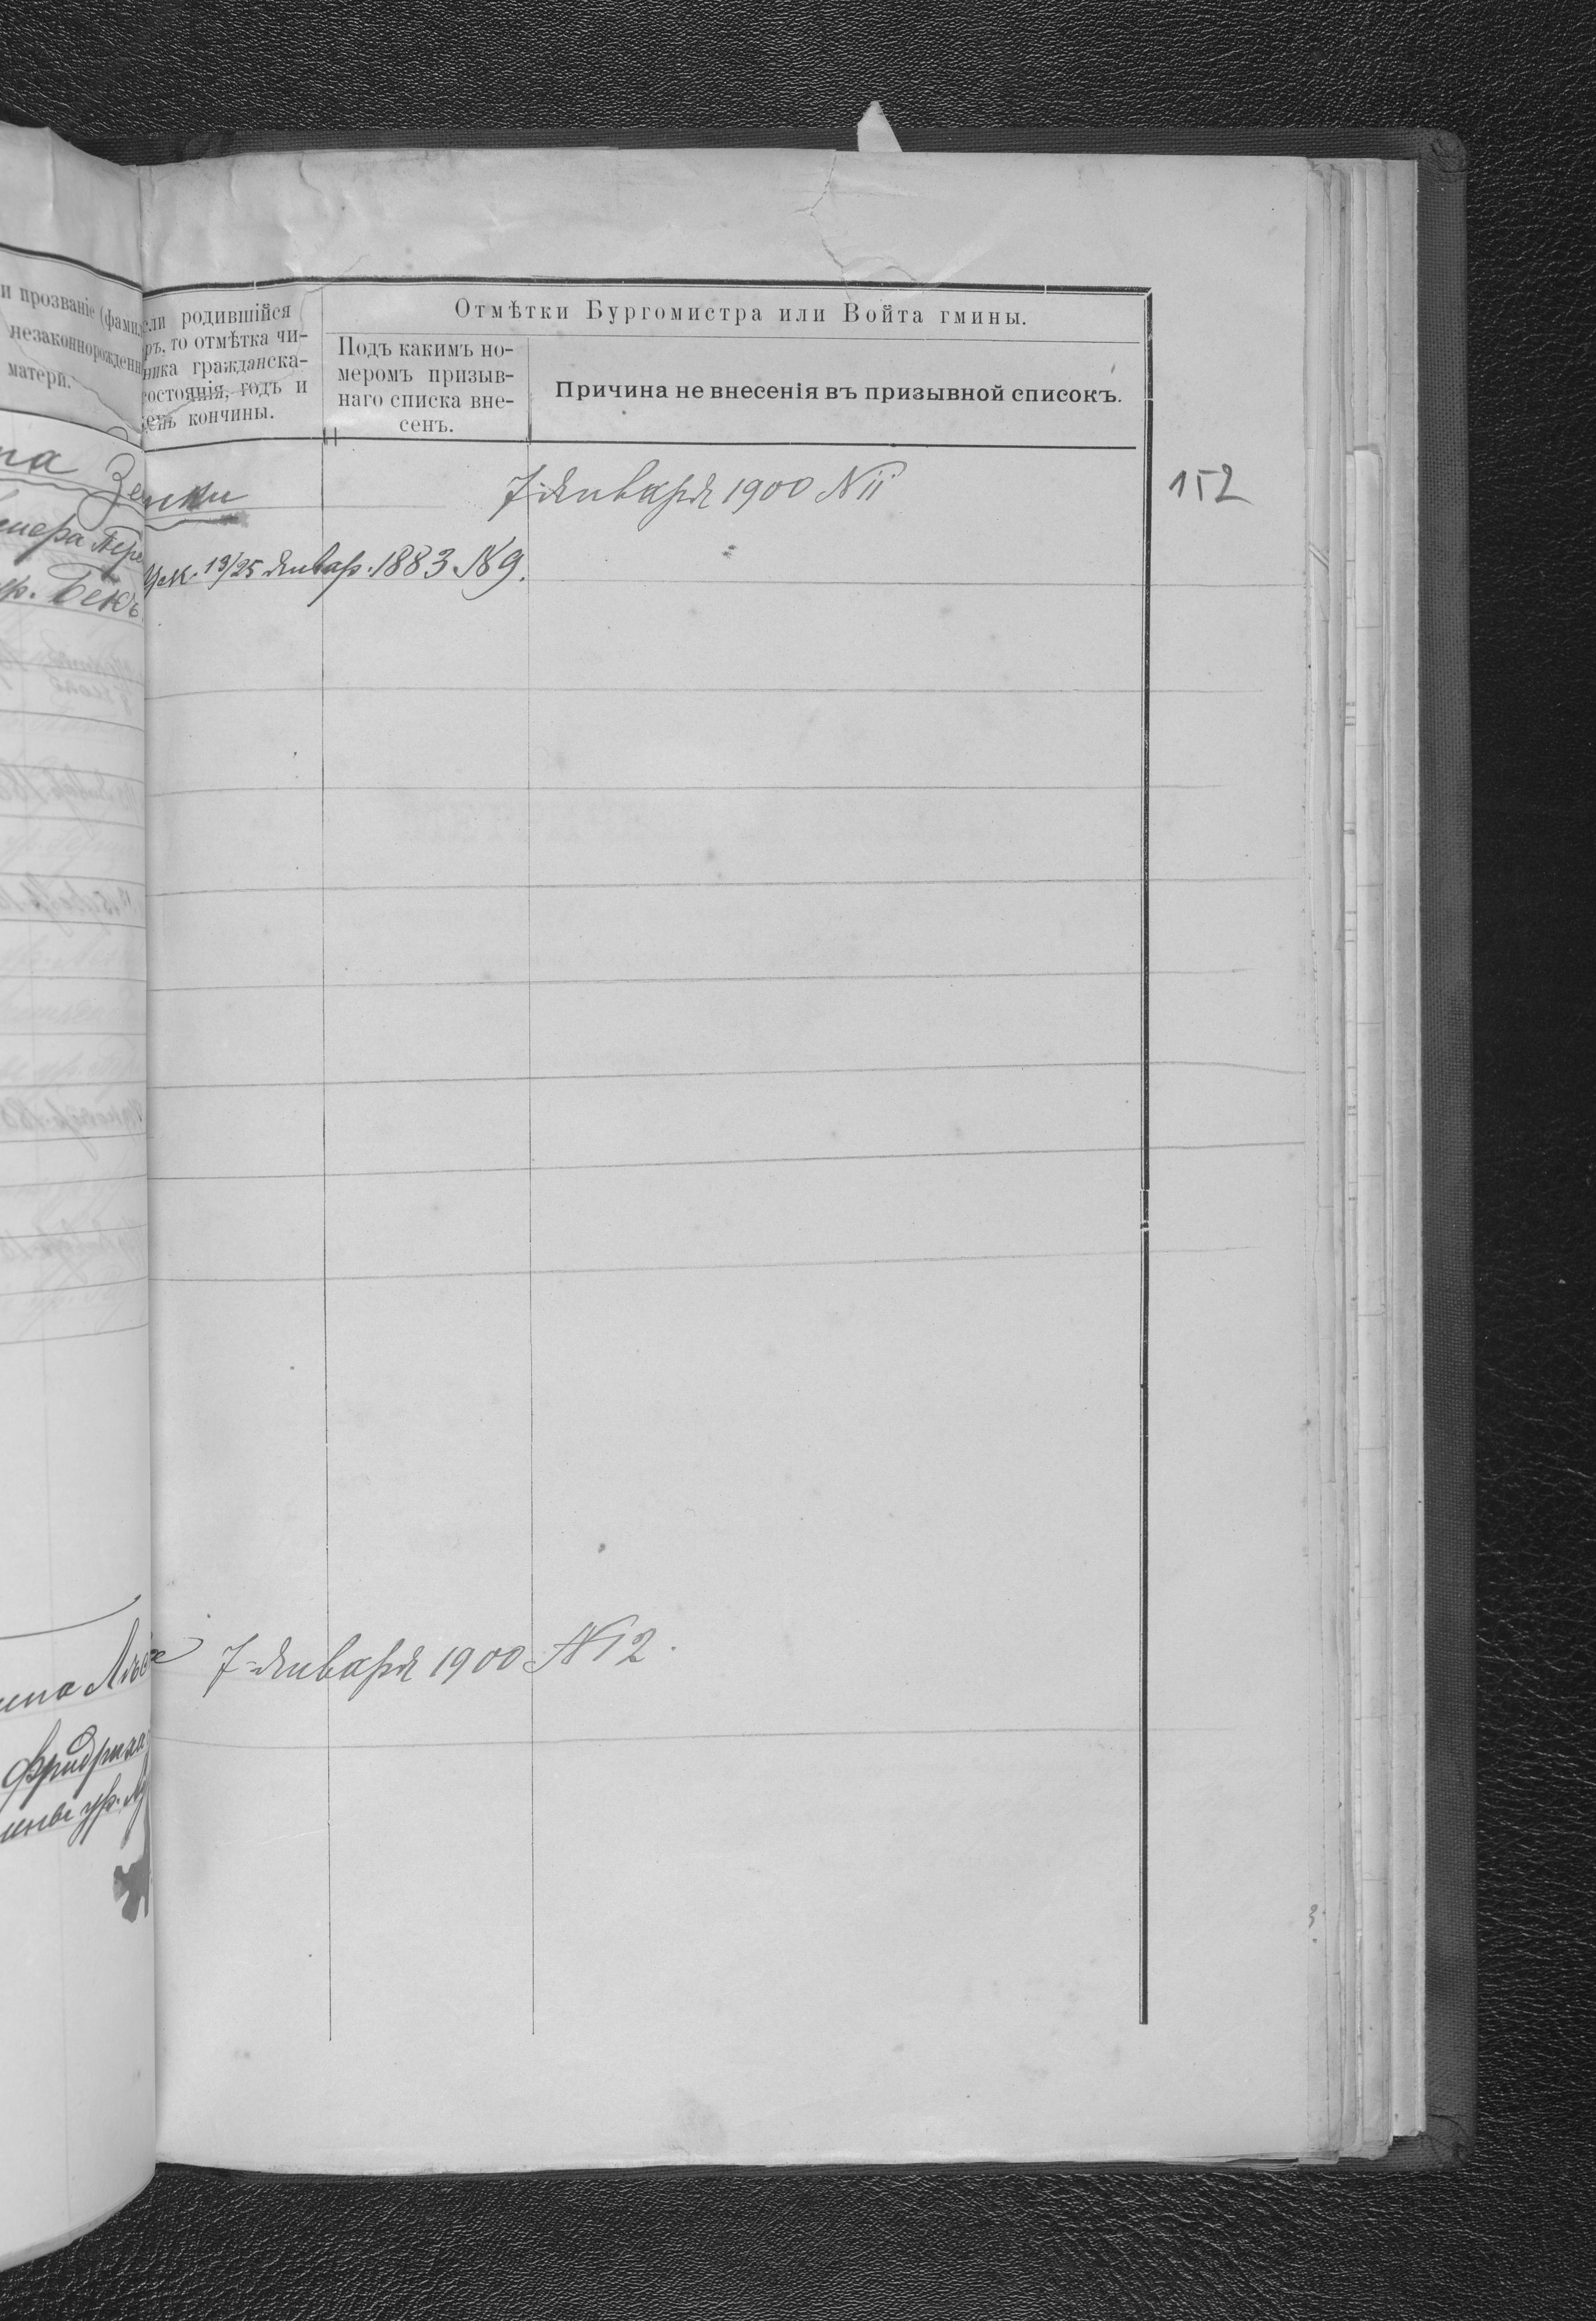 и прозваніе (фами
незаконнорожденн
матери.
ели родившійся
ръ, то отмѣтка чи-
ника гражданска-
состоянія, годъ и
ень кончины.
Отмѣтки Бургомистра или Войта гмины.
Подъ какимъ но-
меромъ призыв-
наго списка вне-
сенъ.
Причина не внесенія въ призывной списокъ.
7 Января 1900 N 11
152
ур. Бекъ
Ум. 13/25 Январ. 1883 № 9.
7 Января 1900 N 12.
Фридриха
ур.